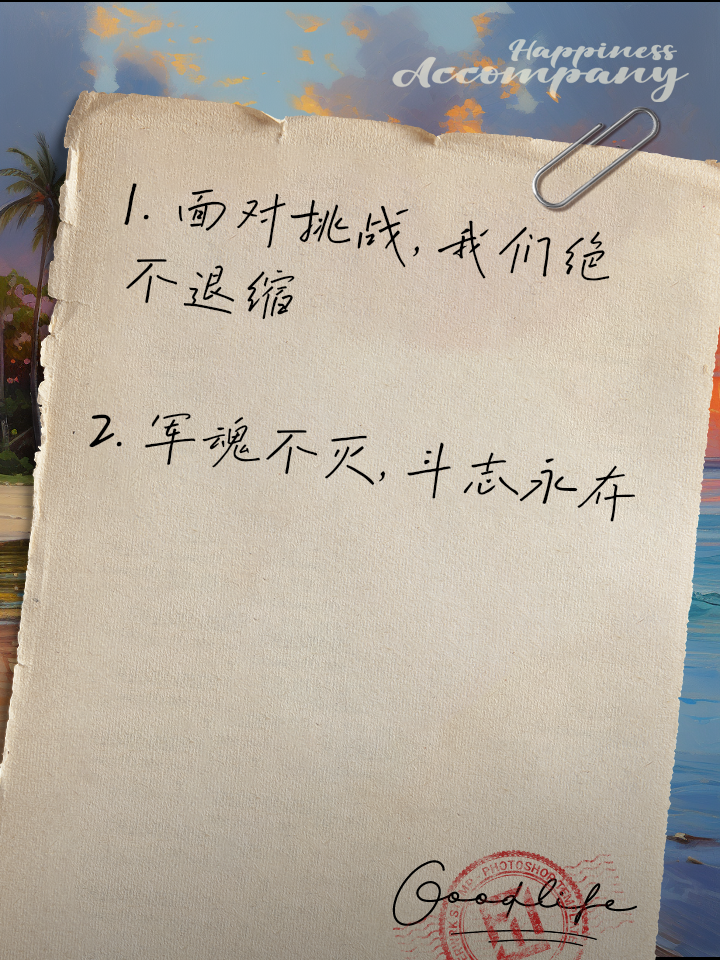 Happiness
Accompany
1. 面对挑战,我们绝
不退缩
2. 军魂不灭,斗志永存
Goodlife
PHOTOSHOP